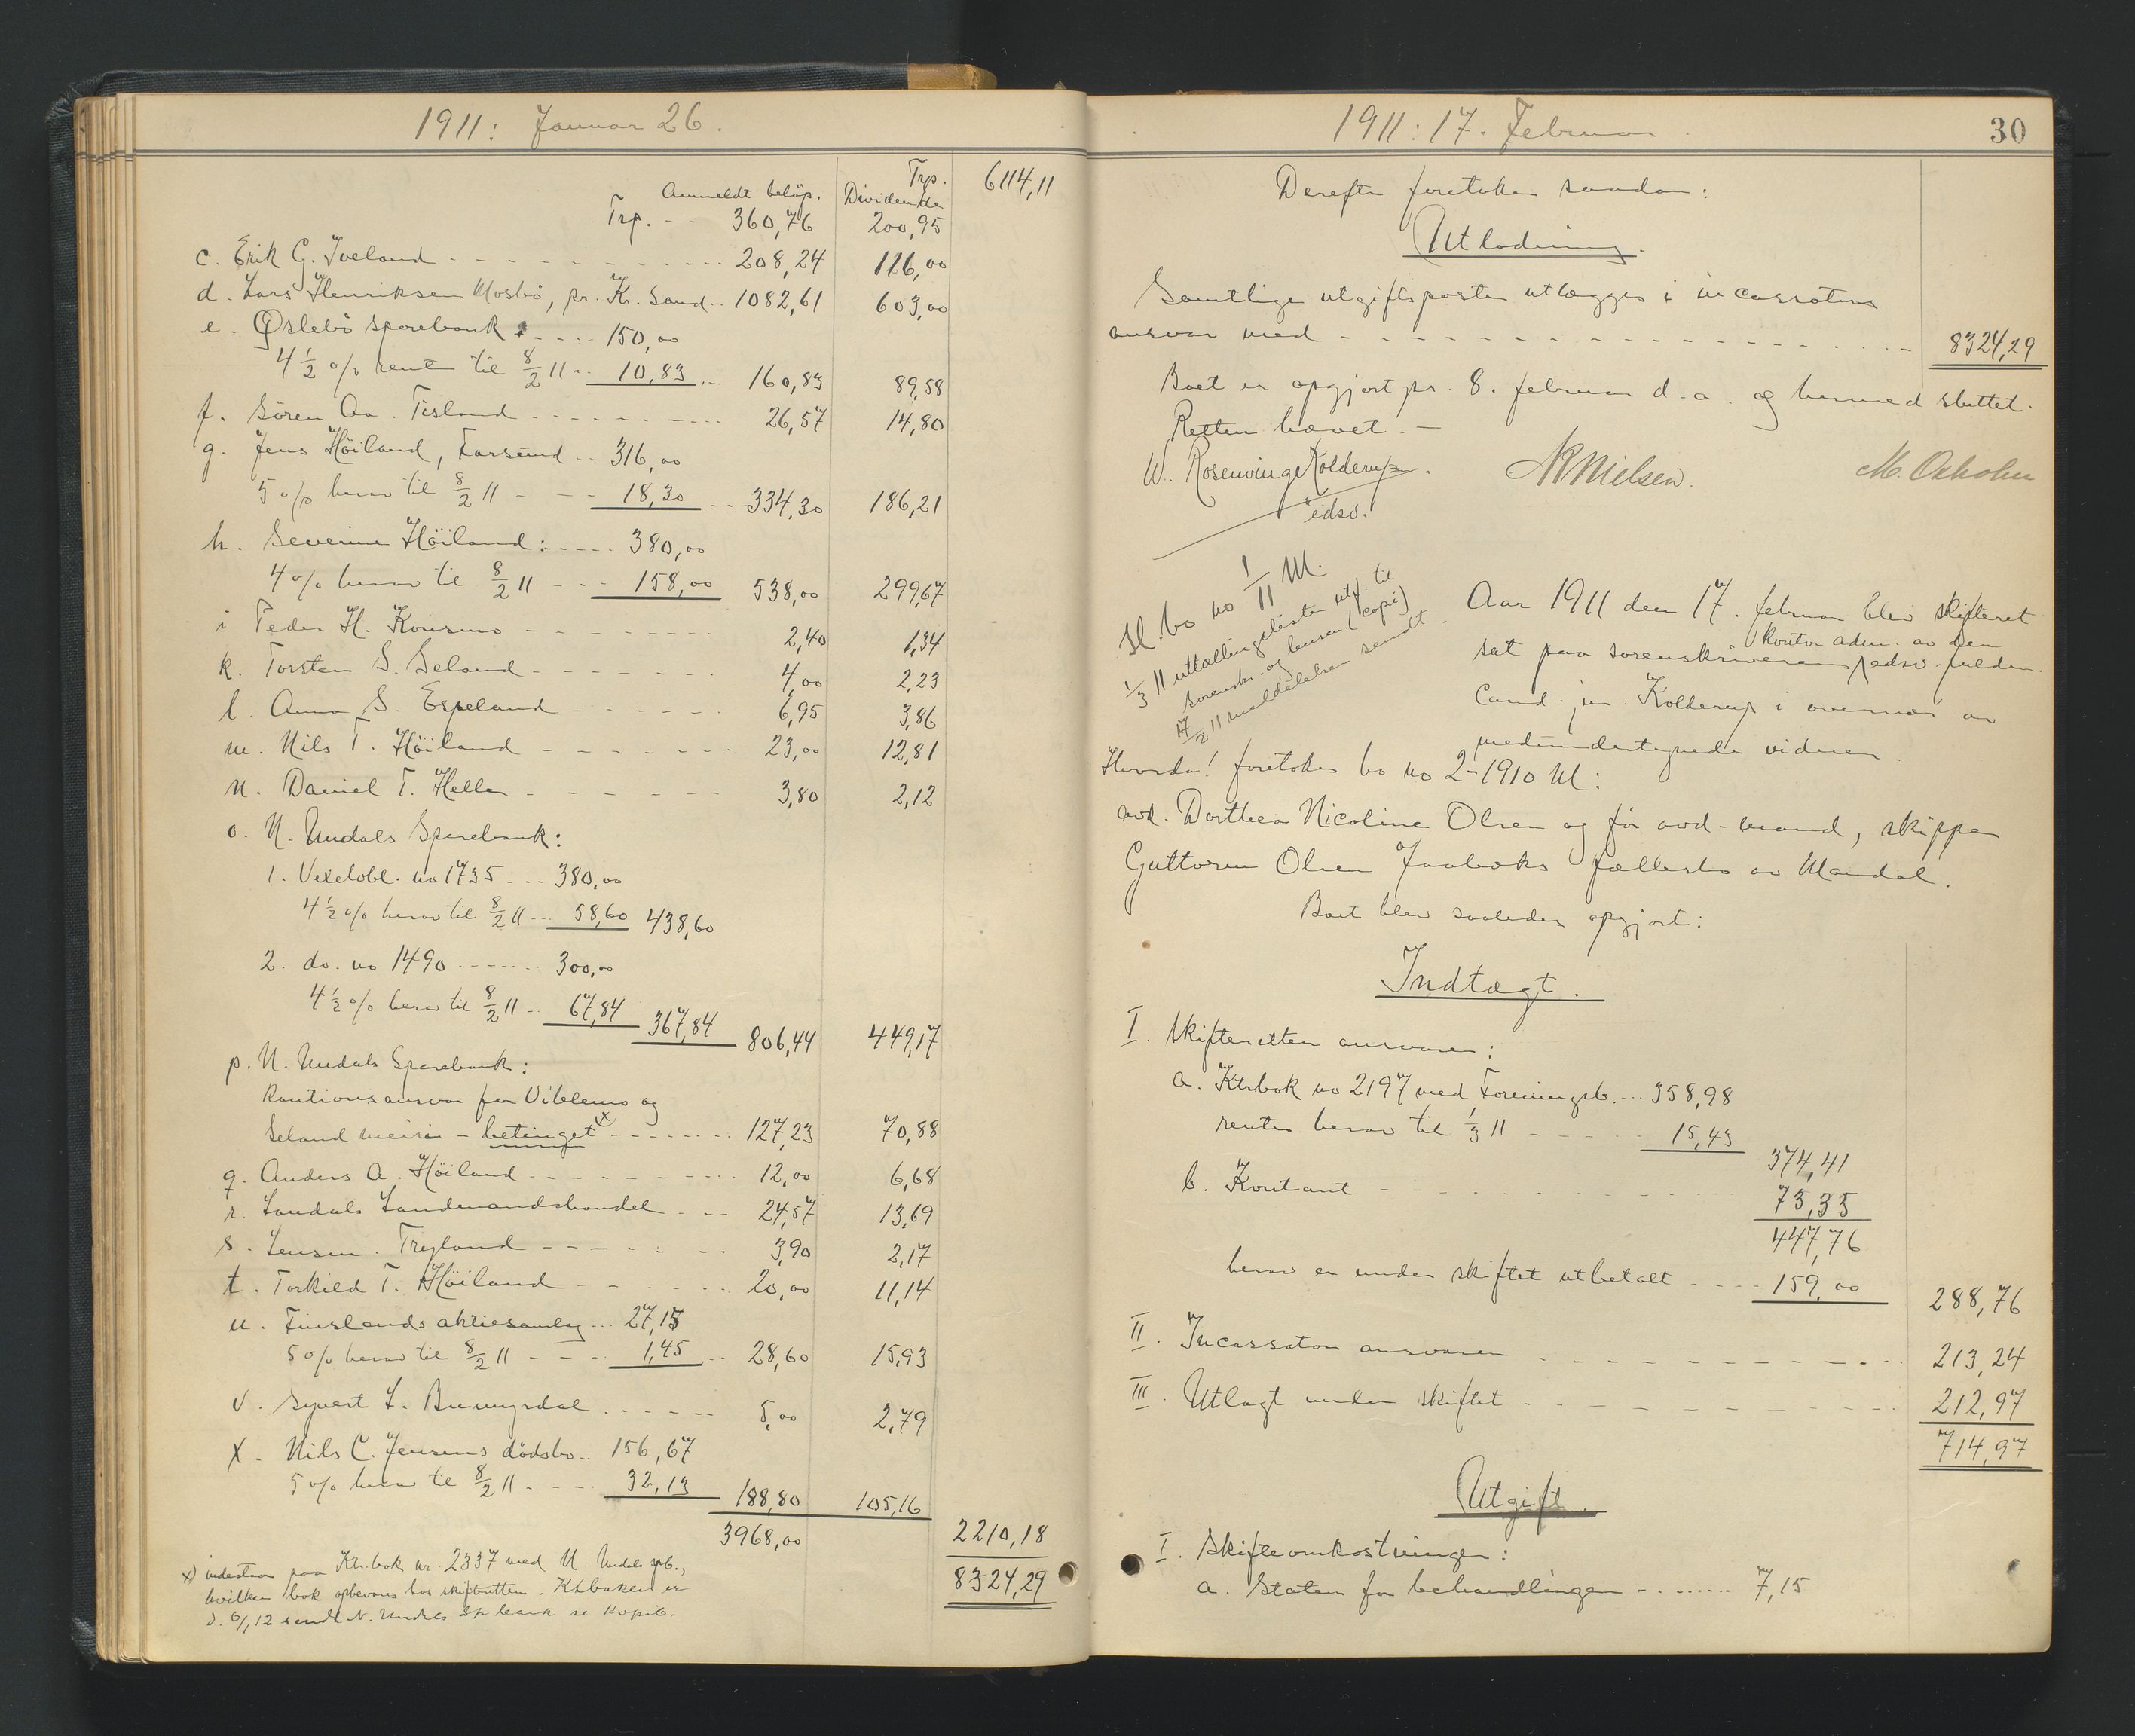 1911: Januar 26.
Anmeldt beløp. Trp. Dividende 6114,11
Trp. - - 360,76 200,95
c. Erik G. Iveland - - - - 208,24 116,00
d. Lars Henriksen Mosbö, pr. Kr. Sand.. 1082,61 603,00
e. Öslebö sparebank : .... 150,00
4½ % renter til 8/2 11 .. 10,83 .. 160,83 89,58
f. Sören Aa. Tisland - - - - 26,57 14,80
g. Jens Höiland, Farsund .. 316,00
5 % herav til 8/2 11 - - - 18,30 .. 334,30 186,21
h. Severine Höiland: ..... 380,00
4 % herav til 8/2 11 - - - 158,00 538,00 299,67
i Peder H. Konsmo - - - - 2,40 1,34
k. Torsten S. Seland - - - - 4,00 2,23
l. Anna S. Espeland - - - - 6,95 3,86
m. Nils T. Höiland - - - - 23,00 12,81
n. Daniel T. Helle - - - - 3,80 2,12
o. N. Undals Sparebank:
1. Vexelobl. no 1735 ... 380,00
4½ % herav til 8/2 11 ... 58,60 438,60
2. do. no 1490 ...... 300,00
4½ % herav til 8/2 11 .. 67,84 367,84 806,44 449,17
p. N. Undals Sparebank:
Kautionsansvar for Viblemo og
Seland meieri - betinget x) - - - - 127,23 70,88
q. Anders A. Höiland - - - - 12,00 6,68
r. Laudals Landmandshandel - - - 24,57 13,69
s. Lensm. Tryland - - - - 3,90 2,17
t. Torkild T. Höiland - - - - 20,00 11,14
u. Finslands aktiesamlag ... 27,15
5 % herav til 8/2 11 - - - 1,45 .. 28,60 15,93
v. Syvert L. - - - - 5,00 2,79
x. Nils C. Jensens dödsbo .. 156,67
5 % herav til 8/2 11 - - - 32,13 188,80 105,16
3968,00 2210,18
8324,29
x) indestaar paa Ktr.bok nr. 2337 med N. Undals spb.,
hvilken bok opbevares hos skifteretten. Ktrboken er
d. 6/1 12 sendt N. Undals Sp bank se Kopib.
1911: 17. Februar
30
Derefter foretokes saadan:
Utlodning.
Samtlige utgiftsposter utlægges i incassators
ansvar med - - - - 8324,29
Boet er opgjort pr. 8. februar d. a. og hermed sluttet.
Retten hævet. -
W. Rosenvinge Kolderup. NNielsen. M. Oxholm
edsv.
Sl. bo no 1/11 M.
1/3 11 uttællingslisten utf. til
sorenskr. og lensm. (copi)
17/2 11 meddelelser sendt.
Aar 1911 den 17. februar blev skifteret
sat paa sorenskriverens kontor adm. av den edsv. fuldm.
Cand. jur. Kolderup i overvær av
medundertegnede vidner.
Hvorda! foretokes bo no 2-1910 M:
avd. Dorthea Nicoline Olsen og før avd. mand, skipper
Guttorm Olsen Jaabæks fællesbo av Mandal.
Boet blev saaledes opgjort:
Indtægt.
I. Skifteretten ansvarer:
a. Ktrbok no 2197 med Foreningsb. ... 358,98
renter herav til 1/3 11 - - - - 15,43
374,41
b. Kontant - - - - 73,35
447,76
herav er under skiftet utbetalt - - - 159,00 288,76
II. Incassator ansvarer - - - - 213,24
III. Utlagt under skiftet - - - - 212,97
714,97
Utgift.
I. Skifteomkostninger:
a. Staten for behandlingen - ....... 7,15